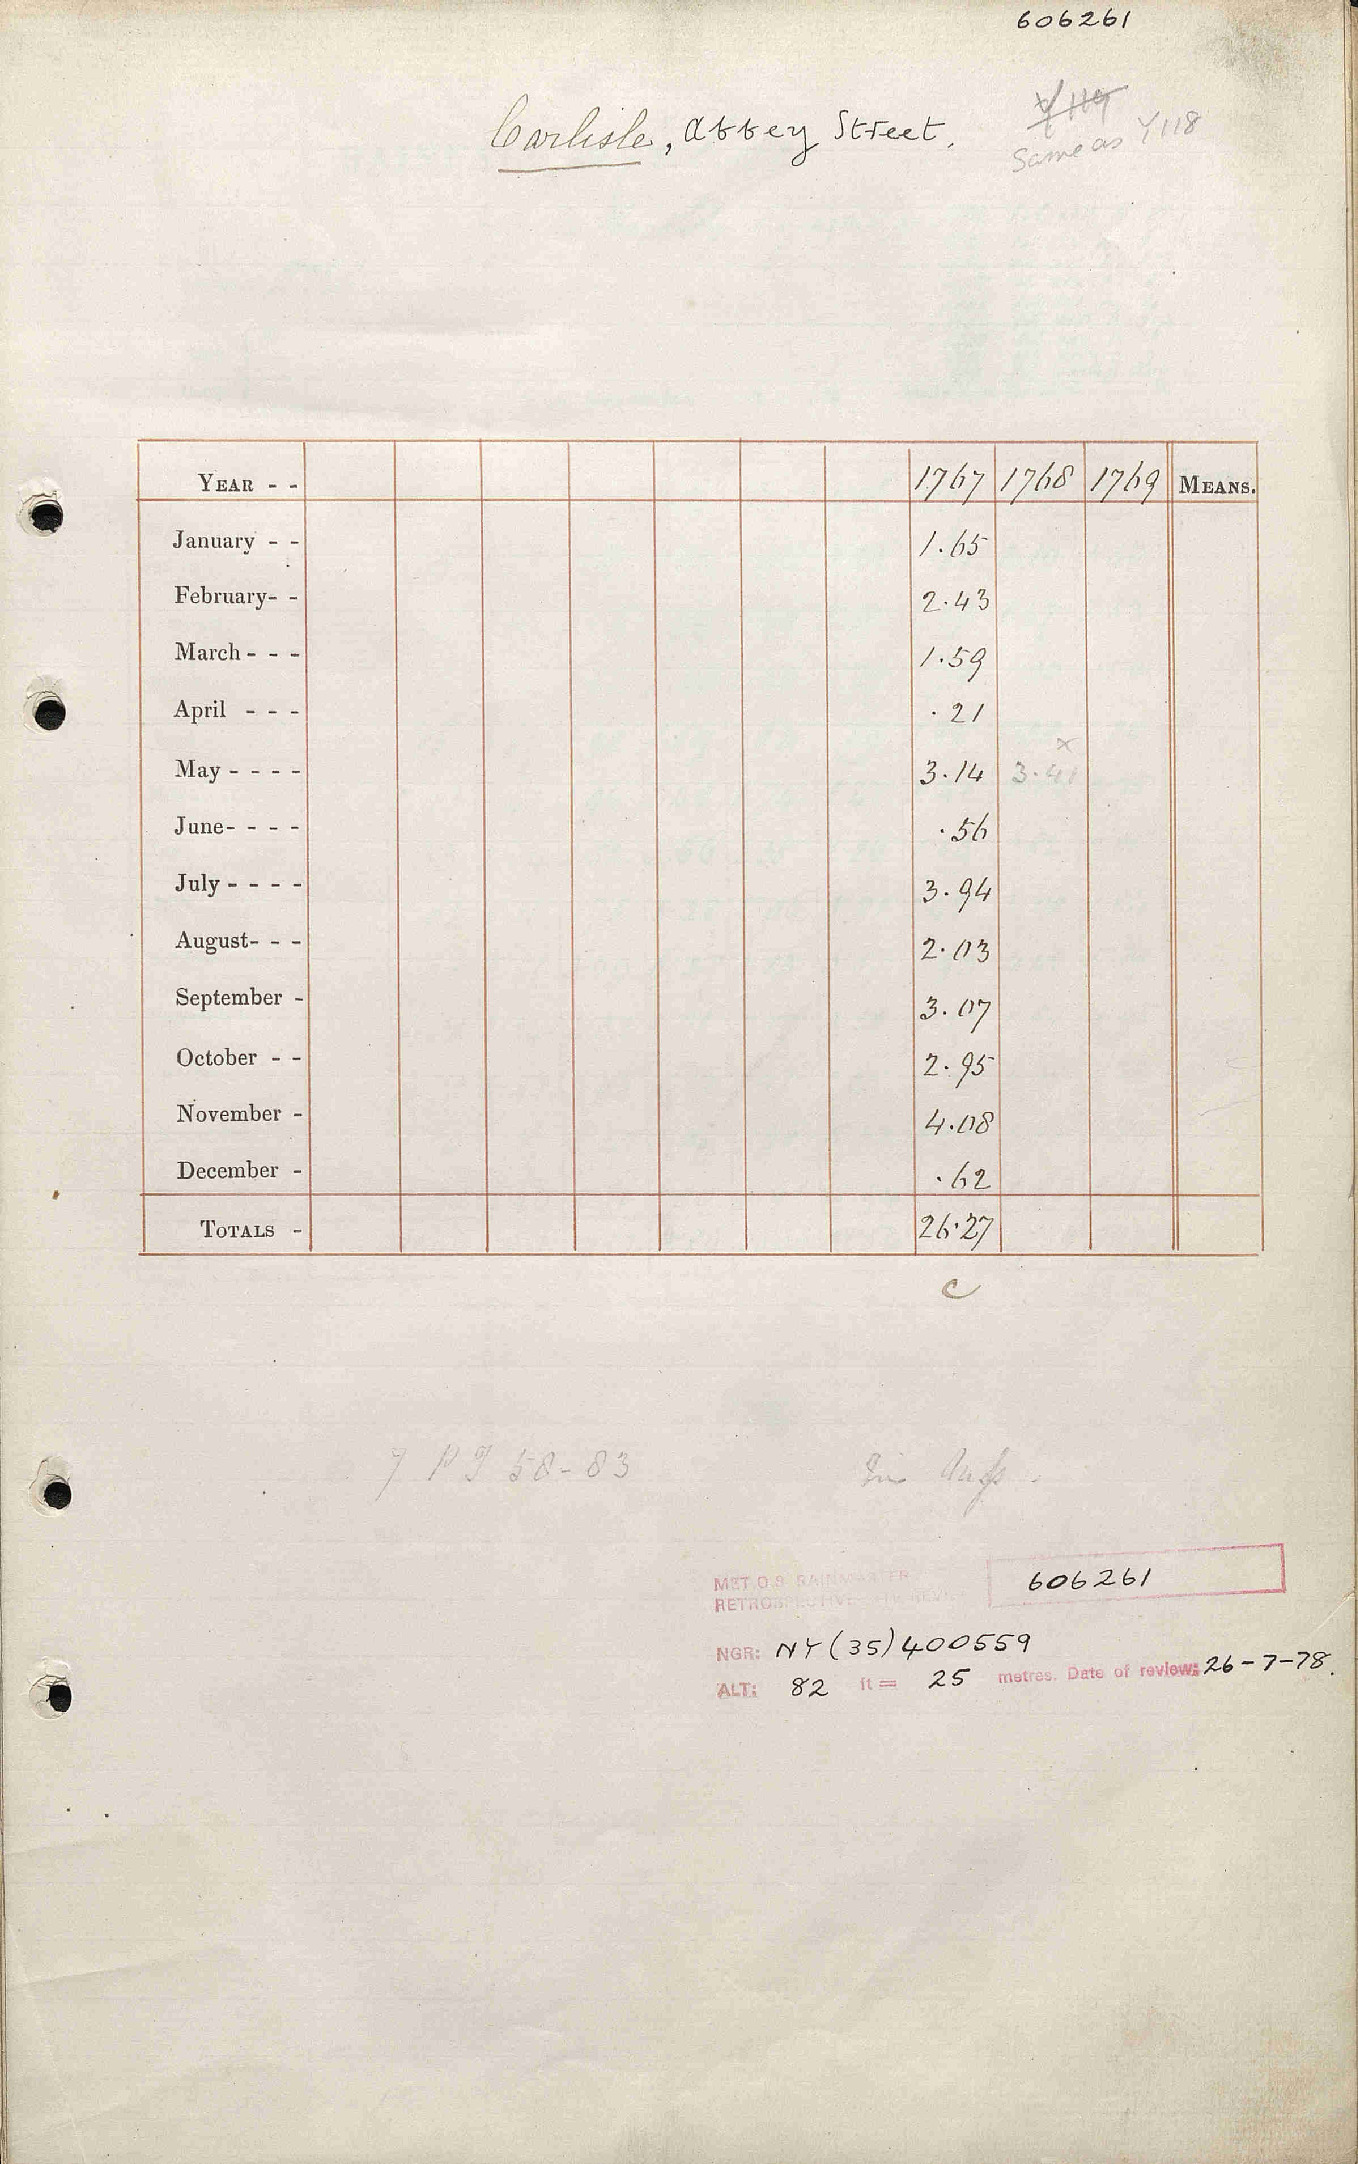 606261
Carlisle, Abbey Street.
Y119
Same as Y118
YEAR - - 1767 1768 1769 MEANS.
January - - 1.65
February- - 2.43
March - - - 1.59
April - - - .21
x
May - - - - 3.14 3.41
June- - - - .56
July - - - - 3.94
August- - - 2.03
September - 3.07
October - - 2.95
November - 4.08
December - .62
TOTALS - 26.27
C
58-83
MET.O.8. RAINMASTER
RETROSPECTIVE
606261
NGR: NY (35) 400559
ALT: 82 ft = 25 metres. Date of review: 26-7-78.